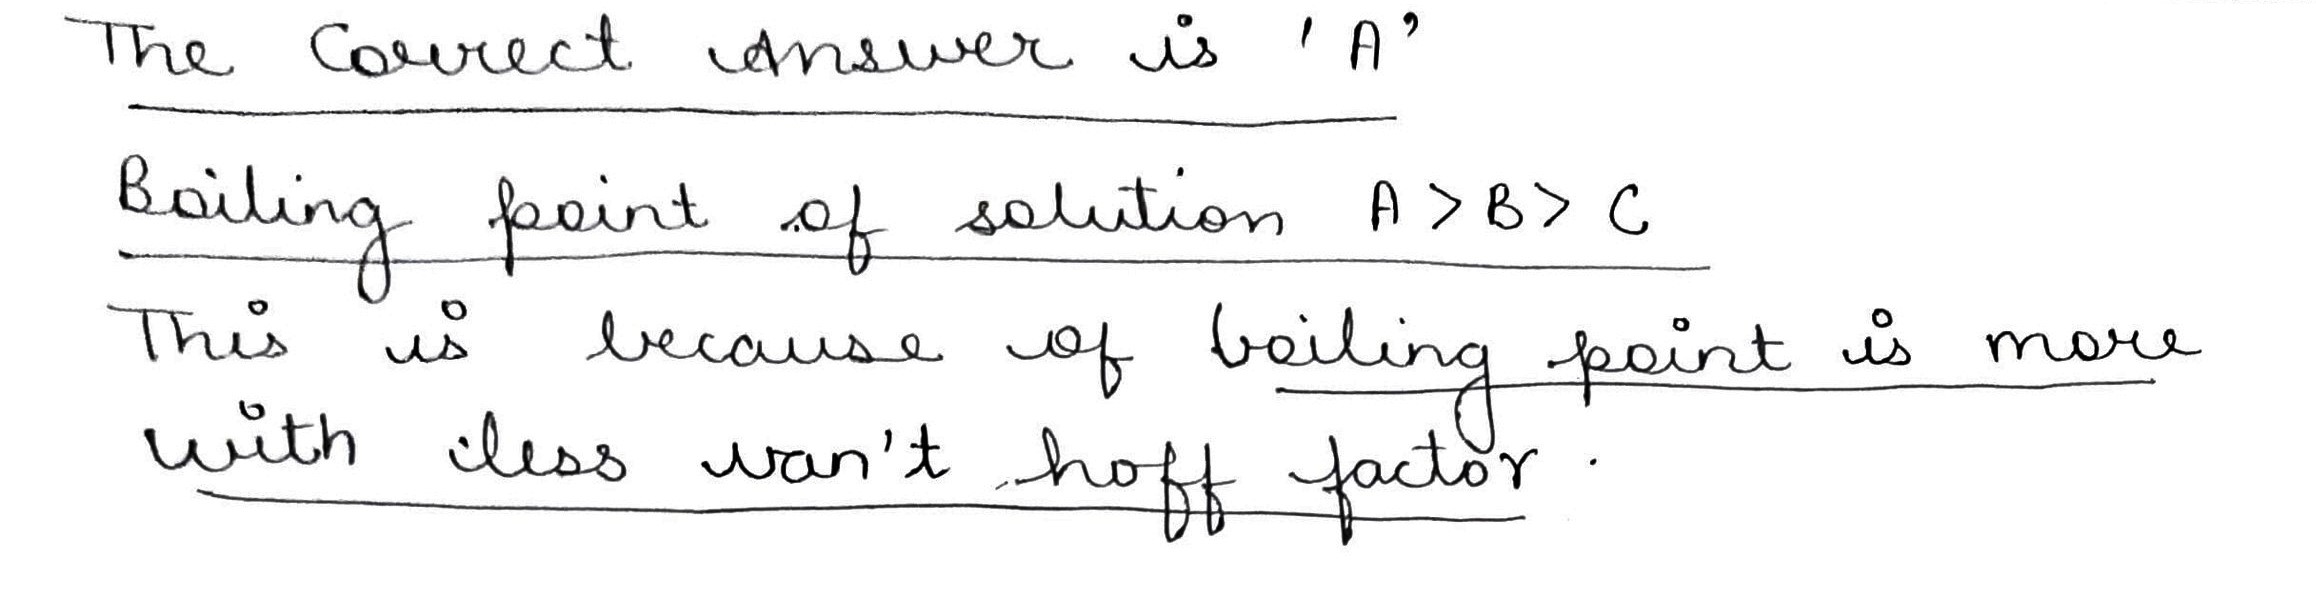 The Correct Answer is 'A'
Boiling point of solution A > B > C
This is because of boiling point is more
with less van't hoff factor.